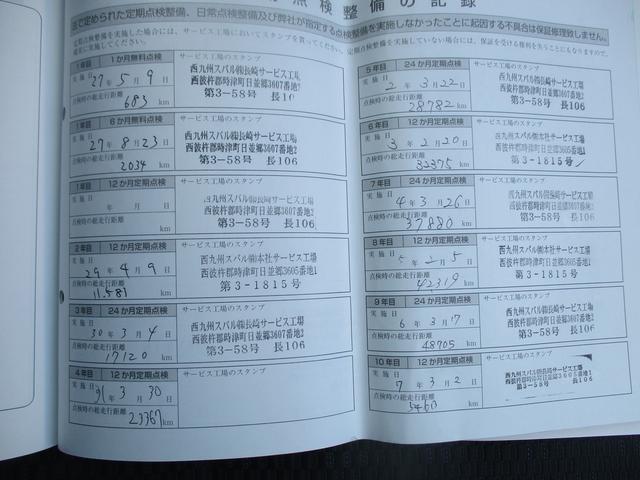 点検整備の記録
で定められた定期点検整備、日常点検整備及び弊社が指定する点検整備を実施しなかったことに起因する不具合は保証修理致しません。
定期点検整備を実施した場合には、サービス工場においてスタンプを貰ってください。定期点検整備を実施していない場合には、保証を受ける権利を失うことにもなりますので、
に実施してください。
1年目 1か月無料点検 サービス工場のスタンプ
実施日 27年5月9日
西九州スバル㈱長崎サービス工場
西彼杵郡時津町日並郷3607番地2
第3-58号 長10
点検時の総走行距離 683 km
1年目 6か月無料点検 サービス工場のスタンプ
実施日 27年8月23日
西九州スバル㈱長崎サービス工場
西彼杵郡時津町日並郷3607番地2
第3-58号 長106
点検時の総走行距離 2034 km
1年目 12か月定期点検 サービス工場のスタンプ
実施日 年 月 日
西九州スバル㈱長崎サービス工場
西彼杵郡時津町日並郷3607番地2
第3-58号 長106
点検時の総走行距離 km
2年目 12か月定期点検 サービス工場のスタンプ
実施日 29年4月9日
西九州スバル㈱本社サービス工場
西彼杵郡時津町日並郷3605番地1
第3-1815号
点検時の総走行距離 11,581 km
3年目 24か月定期点検 サービス工場のスタンプ
実施日 30年3月4日
西九州スバル㈱長崎サービス工場
西彼杵郡時津町日並郷3607番地2
第3-58号 長106
点検時の総走行距離 17120 km
4年目 12か月定期点検 サービス工場のスタンプ
実施日 31年3月30日
点検時の総走行距離 23367 km
5年目 24か月定期点検 サービス工場のスタンプ
実施日 2年3月22日
西九州スバル㈱長崎サービス工場
西彼杵郡時津町日並郷3607番地2
第3-58号 長106
点検時の総走行距離 28782 km
6年目 12か月定期点検 サービス工場のスタンプ
実施日 3年2月20日
西九州スバル㈱本社サービス工場
西彼杵郡時津町日並郷3605番地1
第3-1815号
点検時の総走行距離 32375 km
7年目 24か月定期点検 サービス工場のスタンプ
実施日 4年3月26日
西九州スバル㈱長崎サービス工場
西彼杵郡時津町日並郷3607番地2
第3-58号 長106
点検時の総走行距離 37880 km
8年目 12か月定期点検 サービス工場のスタンプ
実施日 5年2月5日
西九州スバル㈱本社サービス工場
西彼杵郡時津町日並郷3605番地1
第3-1815号
点検時の総走行距離 42319 km
9年目 24か月定期点検 サービス工場のスタンプ
実施日 6年3月17日
西九州スバル㈱長崎サービス工場
西彼杵郡時津町日並郷3607番地2
第3-58号 長106
点検時の総走行距離 48705 km
10年目 12か月定期点検 サービス工場のスタンプ
実施日 7年3月2日
西九州スバル㈱長崎サービス工場
西彼杵郡時津町日並郷
第3-58号 長106
点検時の総走行距離 km